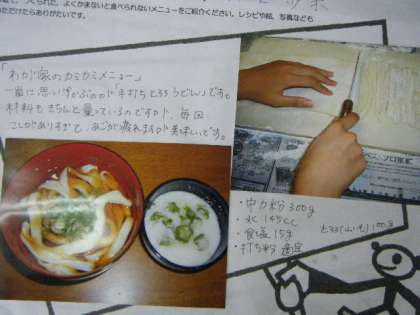 よくかまないと食べられないメニューをご紹介ください。レシピや絵、写真なども
いただけたらありがたいです。
「わが家のカミカミメニュー」
一番に思いつがぶのが「手打ちとろろうどん」です。
材料もきちんと量っているのですが、毎回
こしがありすぎて、あごが疲れますが美味しいです。
・中力粉 300g
・水 145cc
・食塩 15g
・打ち粉 適宜
とろろ(山いも) 100g